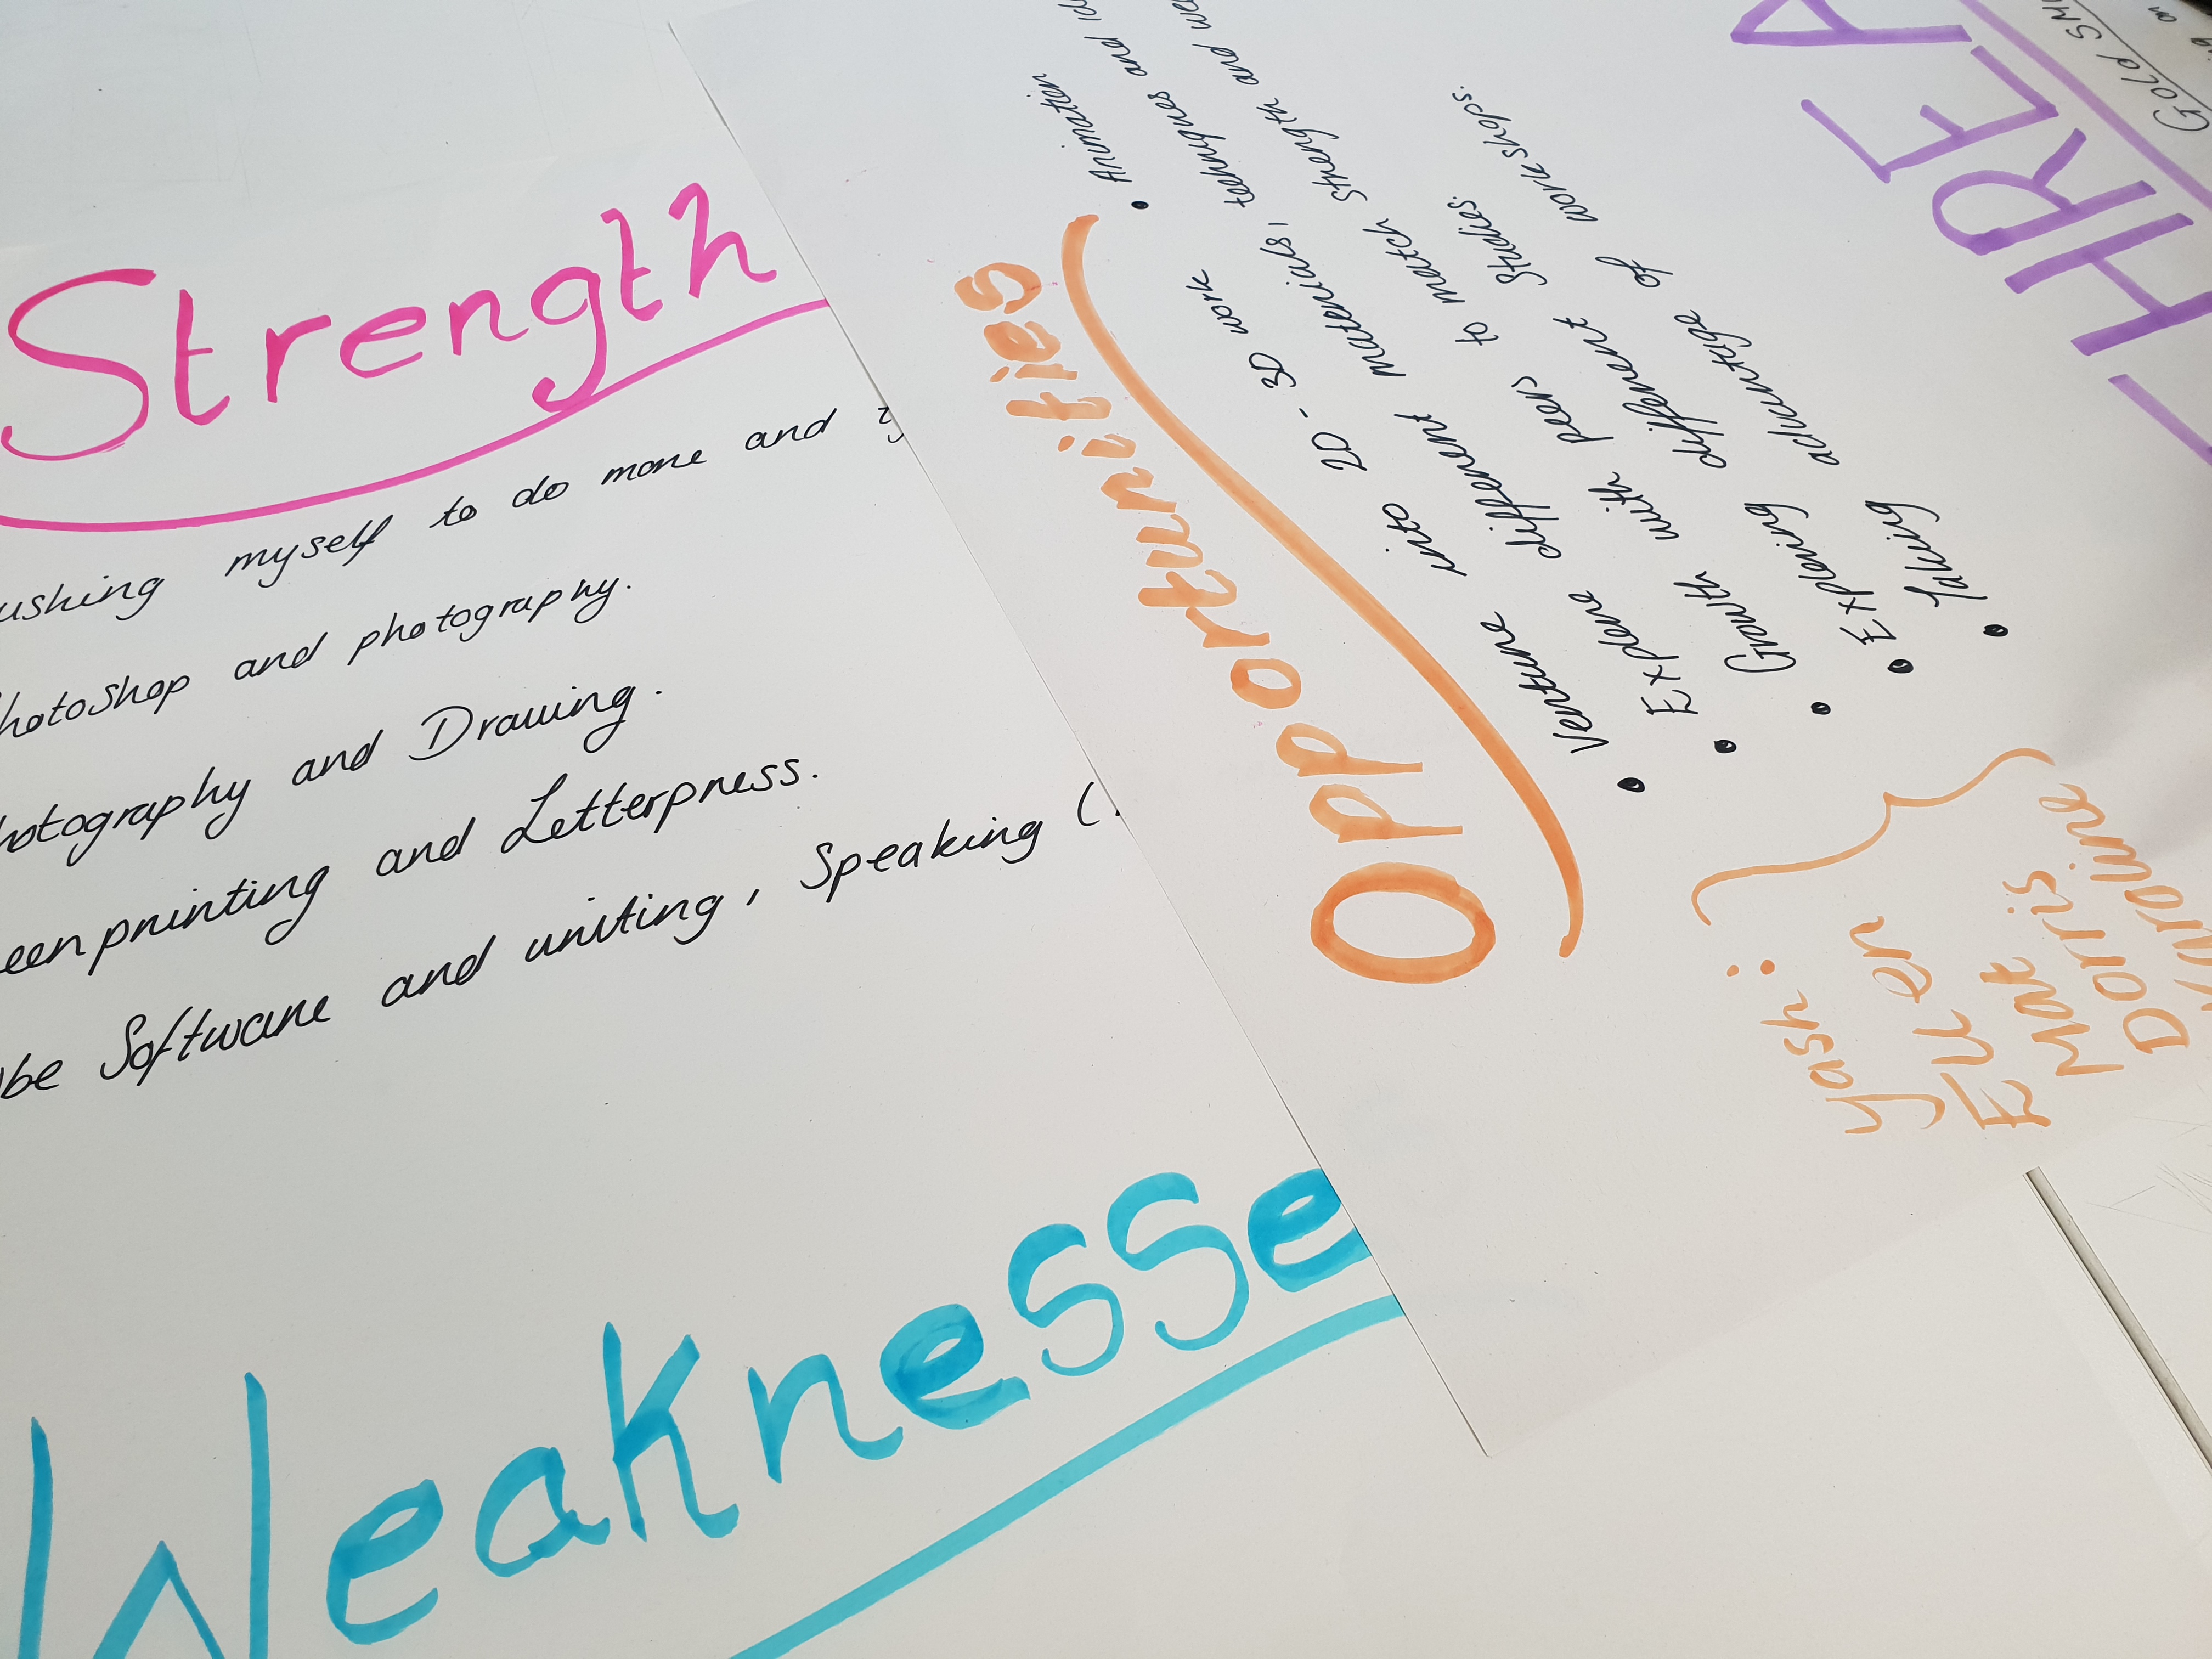 Strength
ushing myself to do more and
hotoshop and photography.
hotography and Drawing.
eenprinting and Letterpress.
obe Software and writing, Speaking (.
Weaknesse
Opportunities
• Venture into 2D - 3D work
• Animation
• Explore different materials, techniques and
• Growth with peers to match strength and we
• Exploring different studies.
• Taking advantage of workshops.
Yash:
Ellen
Mat
Doris
THREA
GOLD